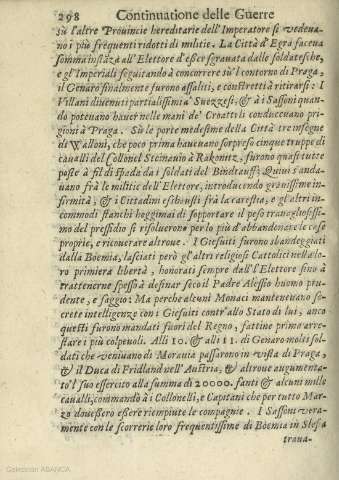 298 Continuatione delle Guerre
sù l'altre Prouincie hereditarie dell'Imperatore si vedeua-
no i più frequenti ridotti di militie. La Città d'Egra faceua
somma instāza all'Elettore d'esser sgrauata dalle soldatesche,
e gl'Imperiali seguitando à concorrere sù'l contorno di Praga,
il Genaro finalmente furono assaliti, e constretti à ritirarsi: I
Villani diuenuti partialissimi a' Suezzesi, & à i Sassoni quan-
do poteuano hauer nelle mani de' Croatti li conduceuano pri-
gioni à Praga. Sù le porte medesime della Città tre insegne
di Walloni, che poco prima haueuano sorpreso cinque truppe di
caualli del Collonel Steinauio à Rakonitz, furono quasi tutte
poste à fil di spada da i soldati del Bindtauff: Quiui s'anda-
uano frà le militie dell'Elettore, introducendo grauissime in-
firmità, & i Cittadini eshausti frà la carestia, e gl'altri in-
commodi stanchi hoggimai di sopportare il peso trauagliosissi-
mo del pressidio si risoluerono per lo più d'abbandonare le case
proprie, e ricouerare altroue. I Giesuiti furono sbandeggiati
dalla Boemia, lasciati però gl'altri religiosi Cattolici nella lo-
ro primiera libertà, honorati sempre dall'Elettore sino à
trattenerne spesso à desinar seco il Padre Alessio huomo pru-
dente, e saggio: Ma perche alcuni Monaci manteneuano se-
crete intelligenze con i Giesuiti contr'allo Stato di lui, anco
questi furono mandati fuori del Regno, fattine prima arre-
stare i più colpeuoli. Alli 10. & alli 11. di Genaro molti sol-
dati che veniuano di Morauia passarono in vista di Praga,
& il Duca di Fridland nell'Austria, & altroue augumenta-
to'l suo essercito alla summa di 20000. fanti & alcuni mille
caualli, commandò à i Collonelli, e Capitani che per tutto Mar-
zo douessero essere riempiute le compagnie. I Sassoni vera-
mente con le scorrerie loro frequentissime di Boemia in Slesa
traua-
Colección ABANCA